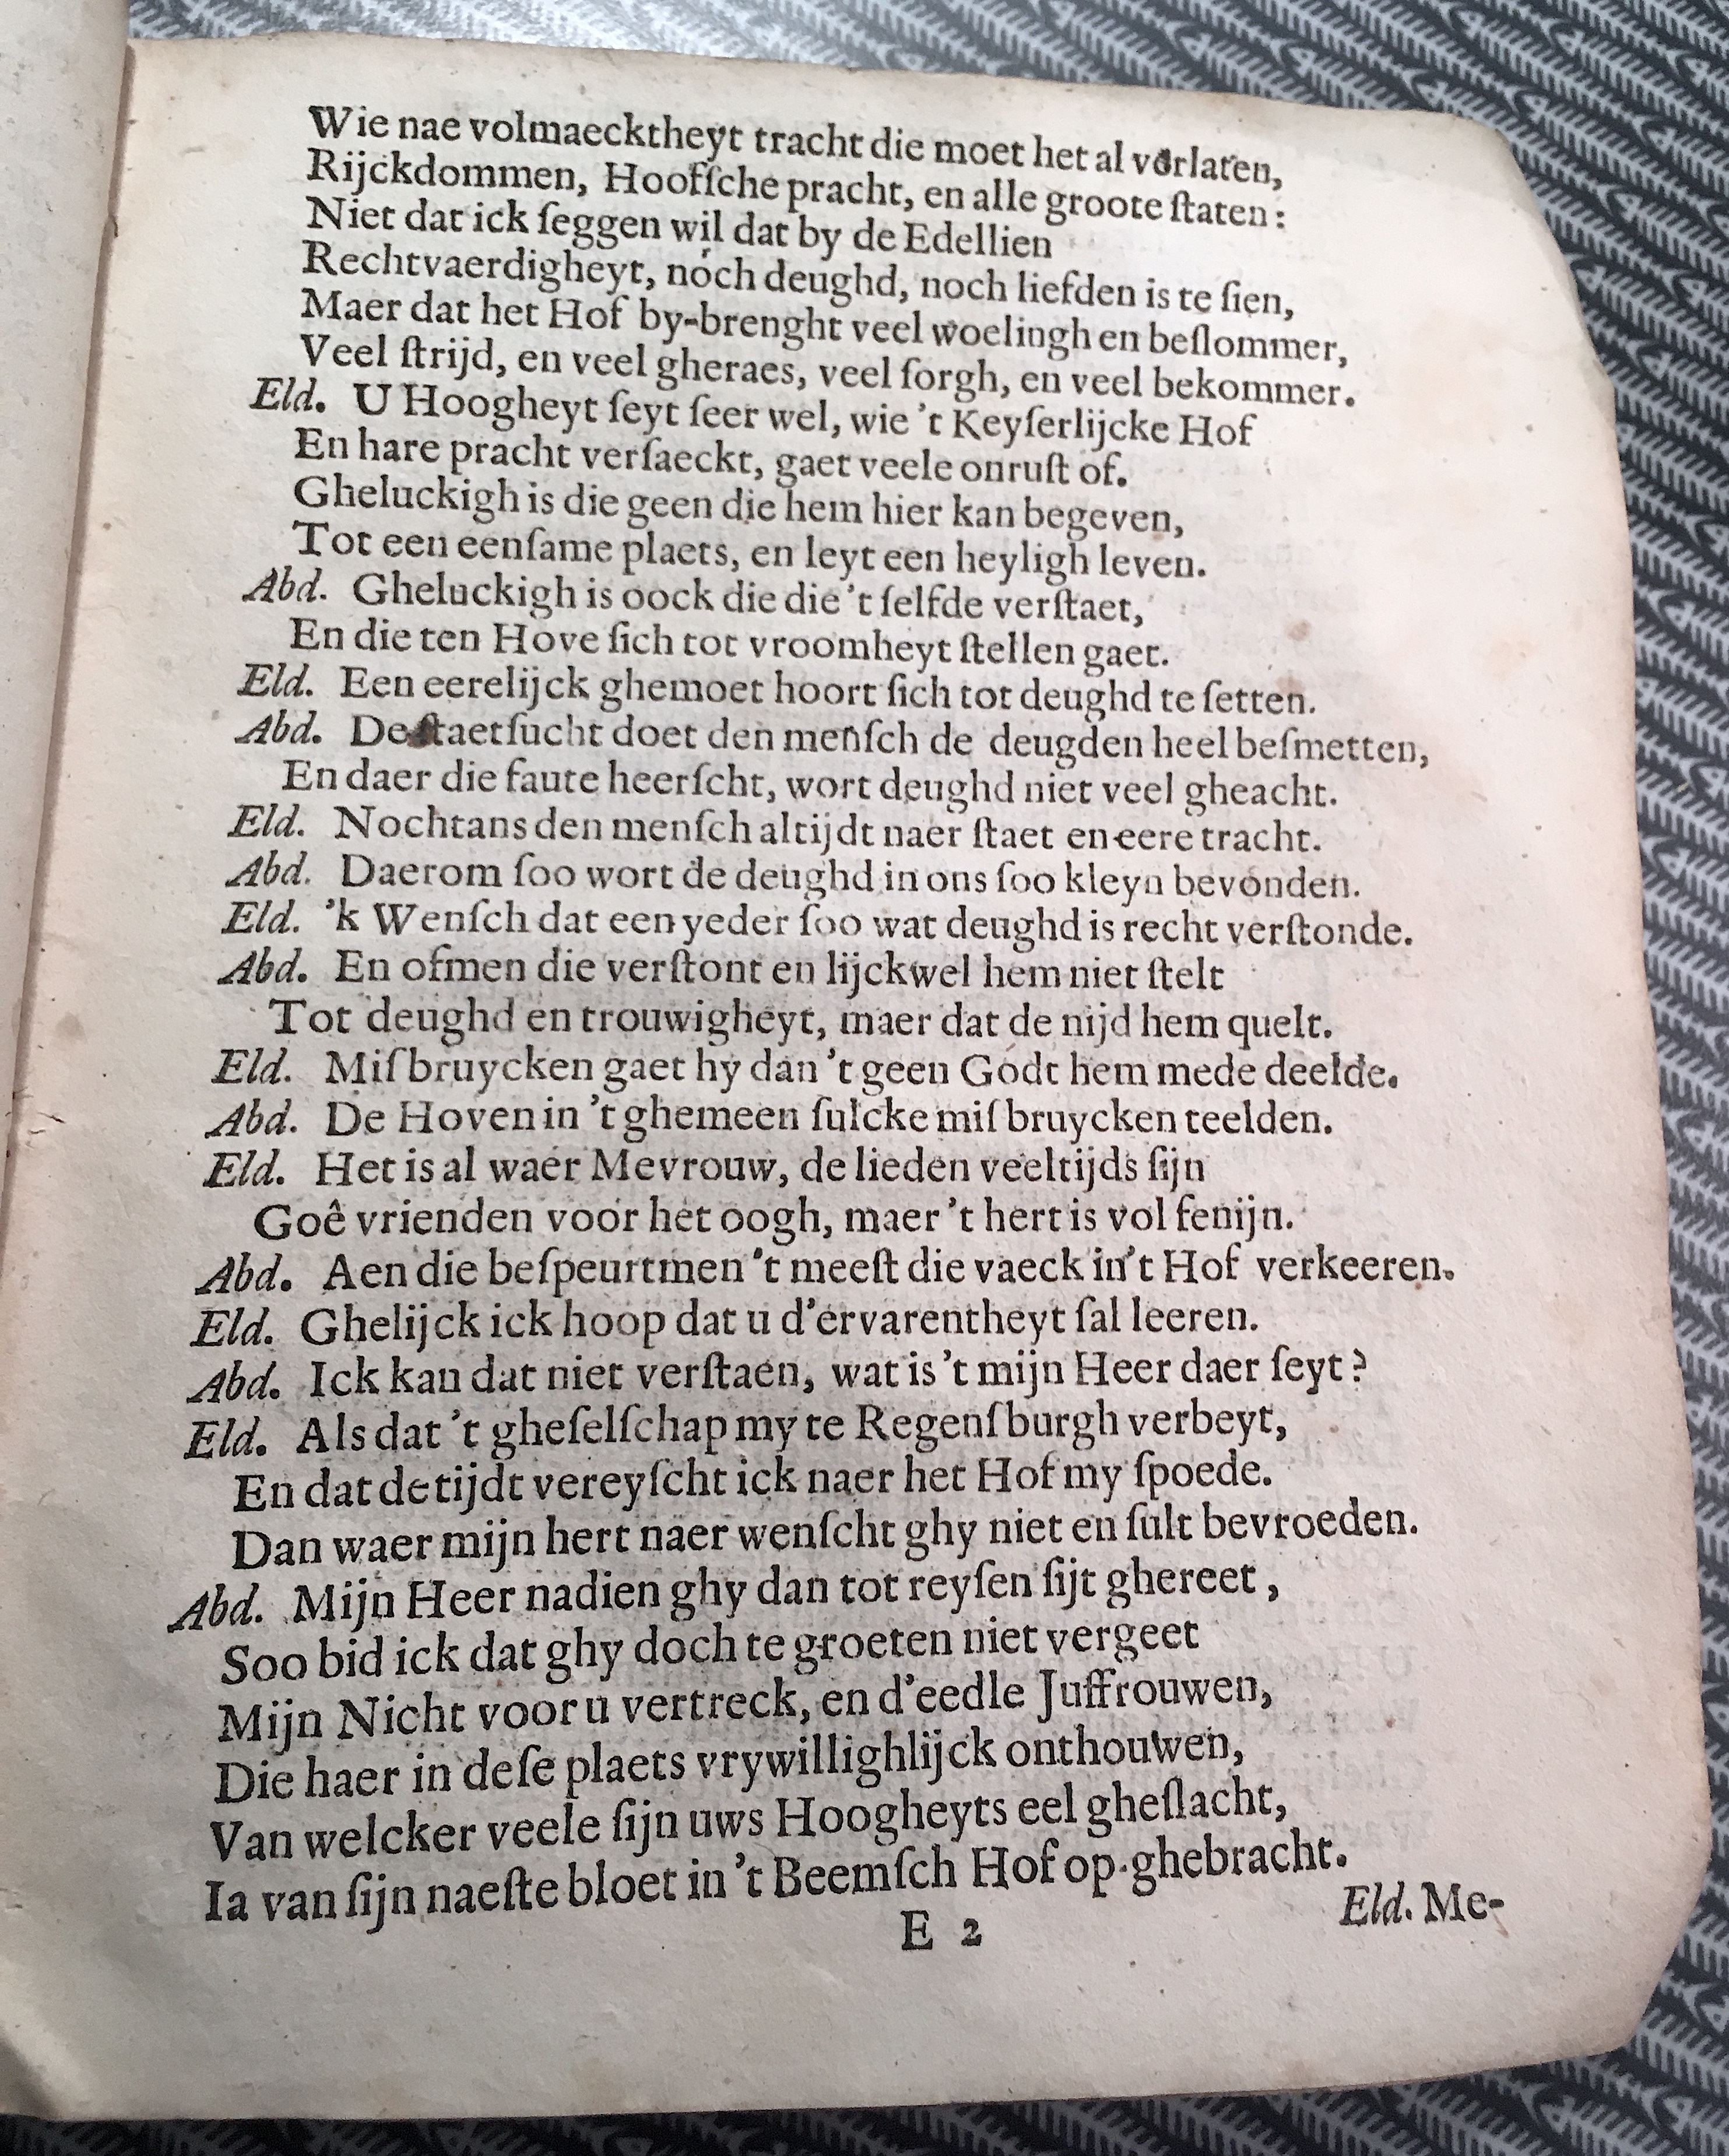 Wie nae volmaecktheyt tracht die moet het al verlaten,
Rijckdommen, Hoofſche pracht, en alle groote ſtaten:
Niet dat ick ſeggen wil dat by de Edellien
Rechtvaerdigheyt, noch deughd, noch liefden is te ſien,
Maer dat het Hof by-brenght veel woelingh en beſlommer,
Veel ſtrijd, en veel gheraes, veel ſorgh, en veel bekommer.
Eld. U Hoogheyt ſeyt ſeer wel, wie 't Keyſerlijcke Hof
En hare pracht verſaeckt, gaet veele onruſt of.
Gheluckigh is die geen die hem hier kan begeven,
Tot een eenſame plaets, en leyt een heyligh leven.
Abd. Gheluckigh is oock die die 't ſelfde verſtaet,
En die ten Hove ſich tot vroomheyt ſtellen gaet.
Eld. Een eerelijck ghemoet hoort ſich tot deughd te ſetten.
Abd. De ſtaetſucht doet den menſch de deugden heel beſmetten,
En daer die faute heerſcht, wort deughd niet veel gheacht.
Eld. Nochtans den menſch altijdt naer ſtaet en eere tracht.
Abd. Daerom ſoo wort de deughd in ons ſoo kleyn bevonden.
Eld. 'k Wenſch dat een yeder ſoo wat deughd is recht verſtonde.
Abd. En ofmen die verſtont en lijckwel hem niet ſtelt
Tot deughd en trouwigheyt, maer dat de nijd hem quelt.
Eld. Miſbruycken gaet hy dan 't geen Godt hem mede deelde.
Abd. De Hoven in 't ghemeen ſulcke miſbruycken teelden.
Eld. Het is al waer Mevrouw, de lieden veeltijds ſijn
Goê vrienden voor het oogh, maer 't hert is vol fenijn.
Abd. Aen die beſpeurtmen 't meeſt die vaeck in 't Hof verkeeren.
Eld. Ghelijck ick hoop dat u d'ervarentheyt ſal leeren.
Abd. Ick kan dat niet verſtaen, wat is 't mijn Heer daer ſeyt?
Eld. Als dat 't gheſelſchap my te Regenſburgh verbeyt,
En dat de tijdt vereyſcht ick naer het Hof my ſpoede.
Dan waer mijn hert naer wenſcht ghy niet en ſult bevroeden.
Abd. Mijn Heer nadien ghy dan tot reyſen ſijt ghereet,
Soo bid ick dat ghy doch te groeten niet vergeet
Mijn Nicht voor u vertreck, en d'eedle Juffrouwen,
Die haer in deſe plaets vrywillighlijck onthouwen,
Van welcker veele ſijn uws Hoogheyts eel gheſlacht,
Ia van ſijn naeſte bloet in 't Beemſch Hof op-ghebracht.
Eld. Me-
E 2